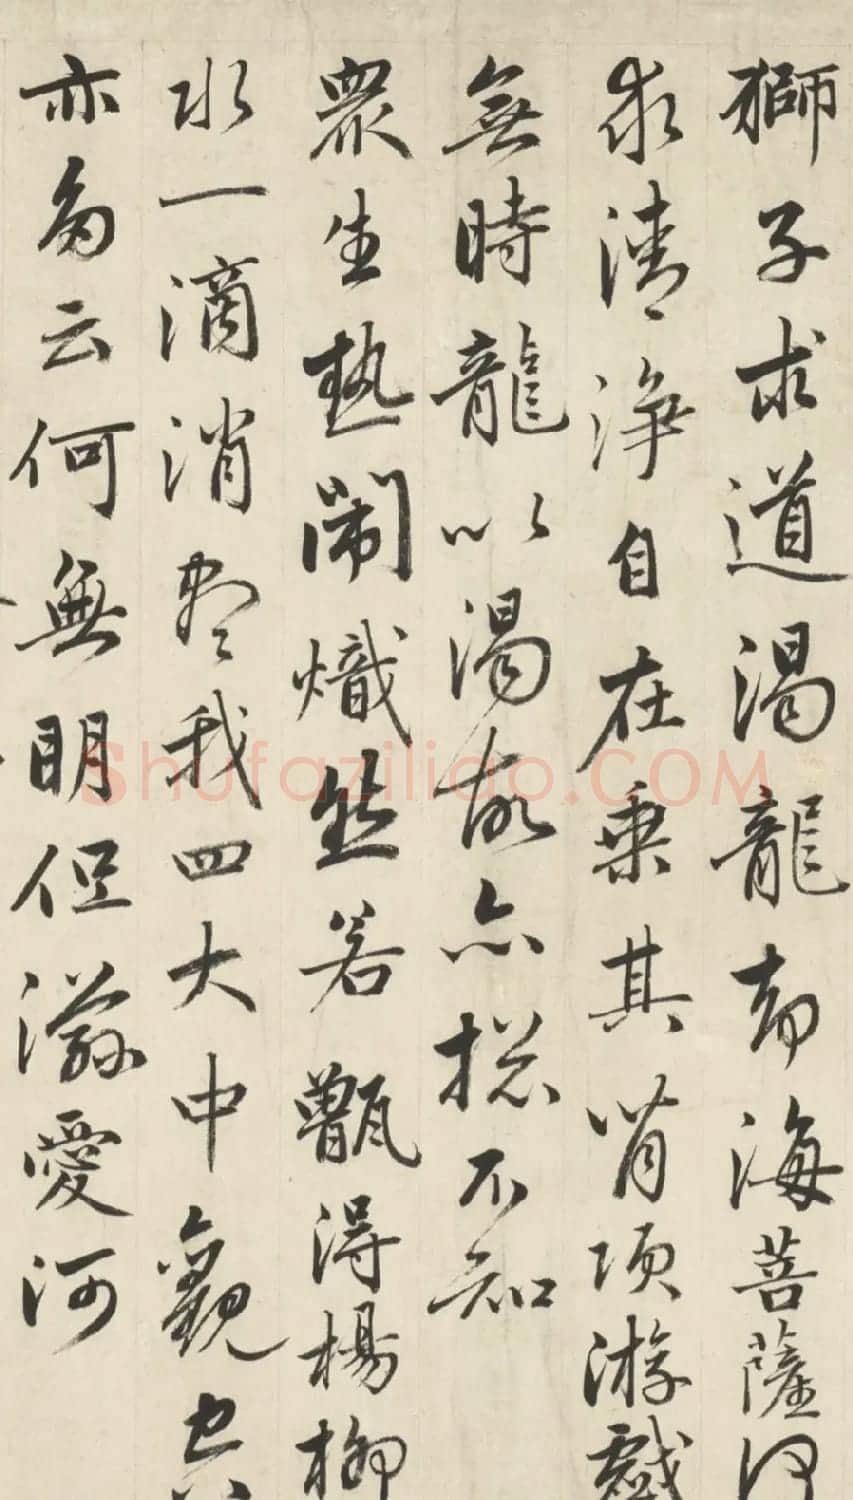 獅子求道渴龍海菩薩
求清淨自在乘其背項游戲
無時龍以渴故亦捴不知
眾生熱鬧熾然若甑得楊柳
水一滴消盡我四大中觀世
亦云何無明但滋愛河
Shufaziliao.COM